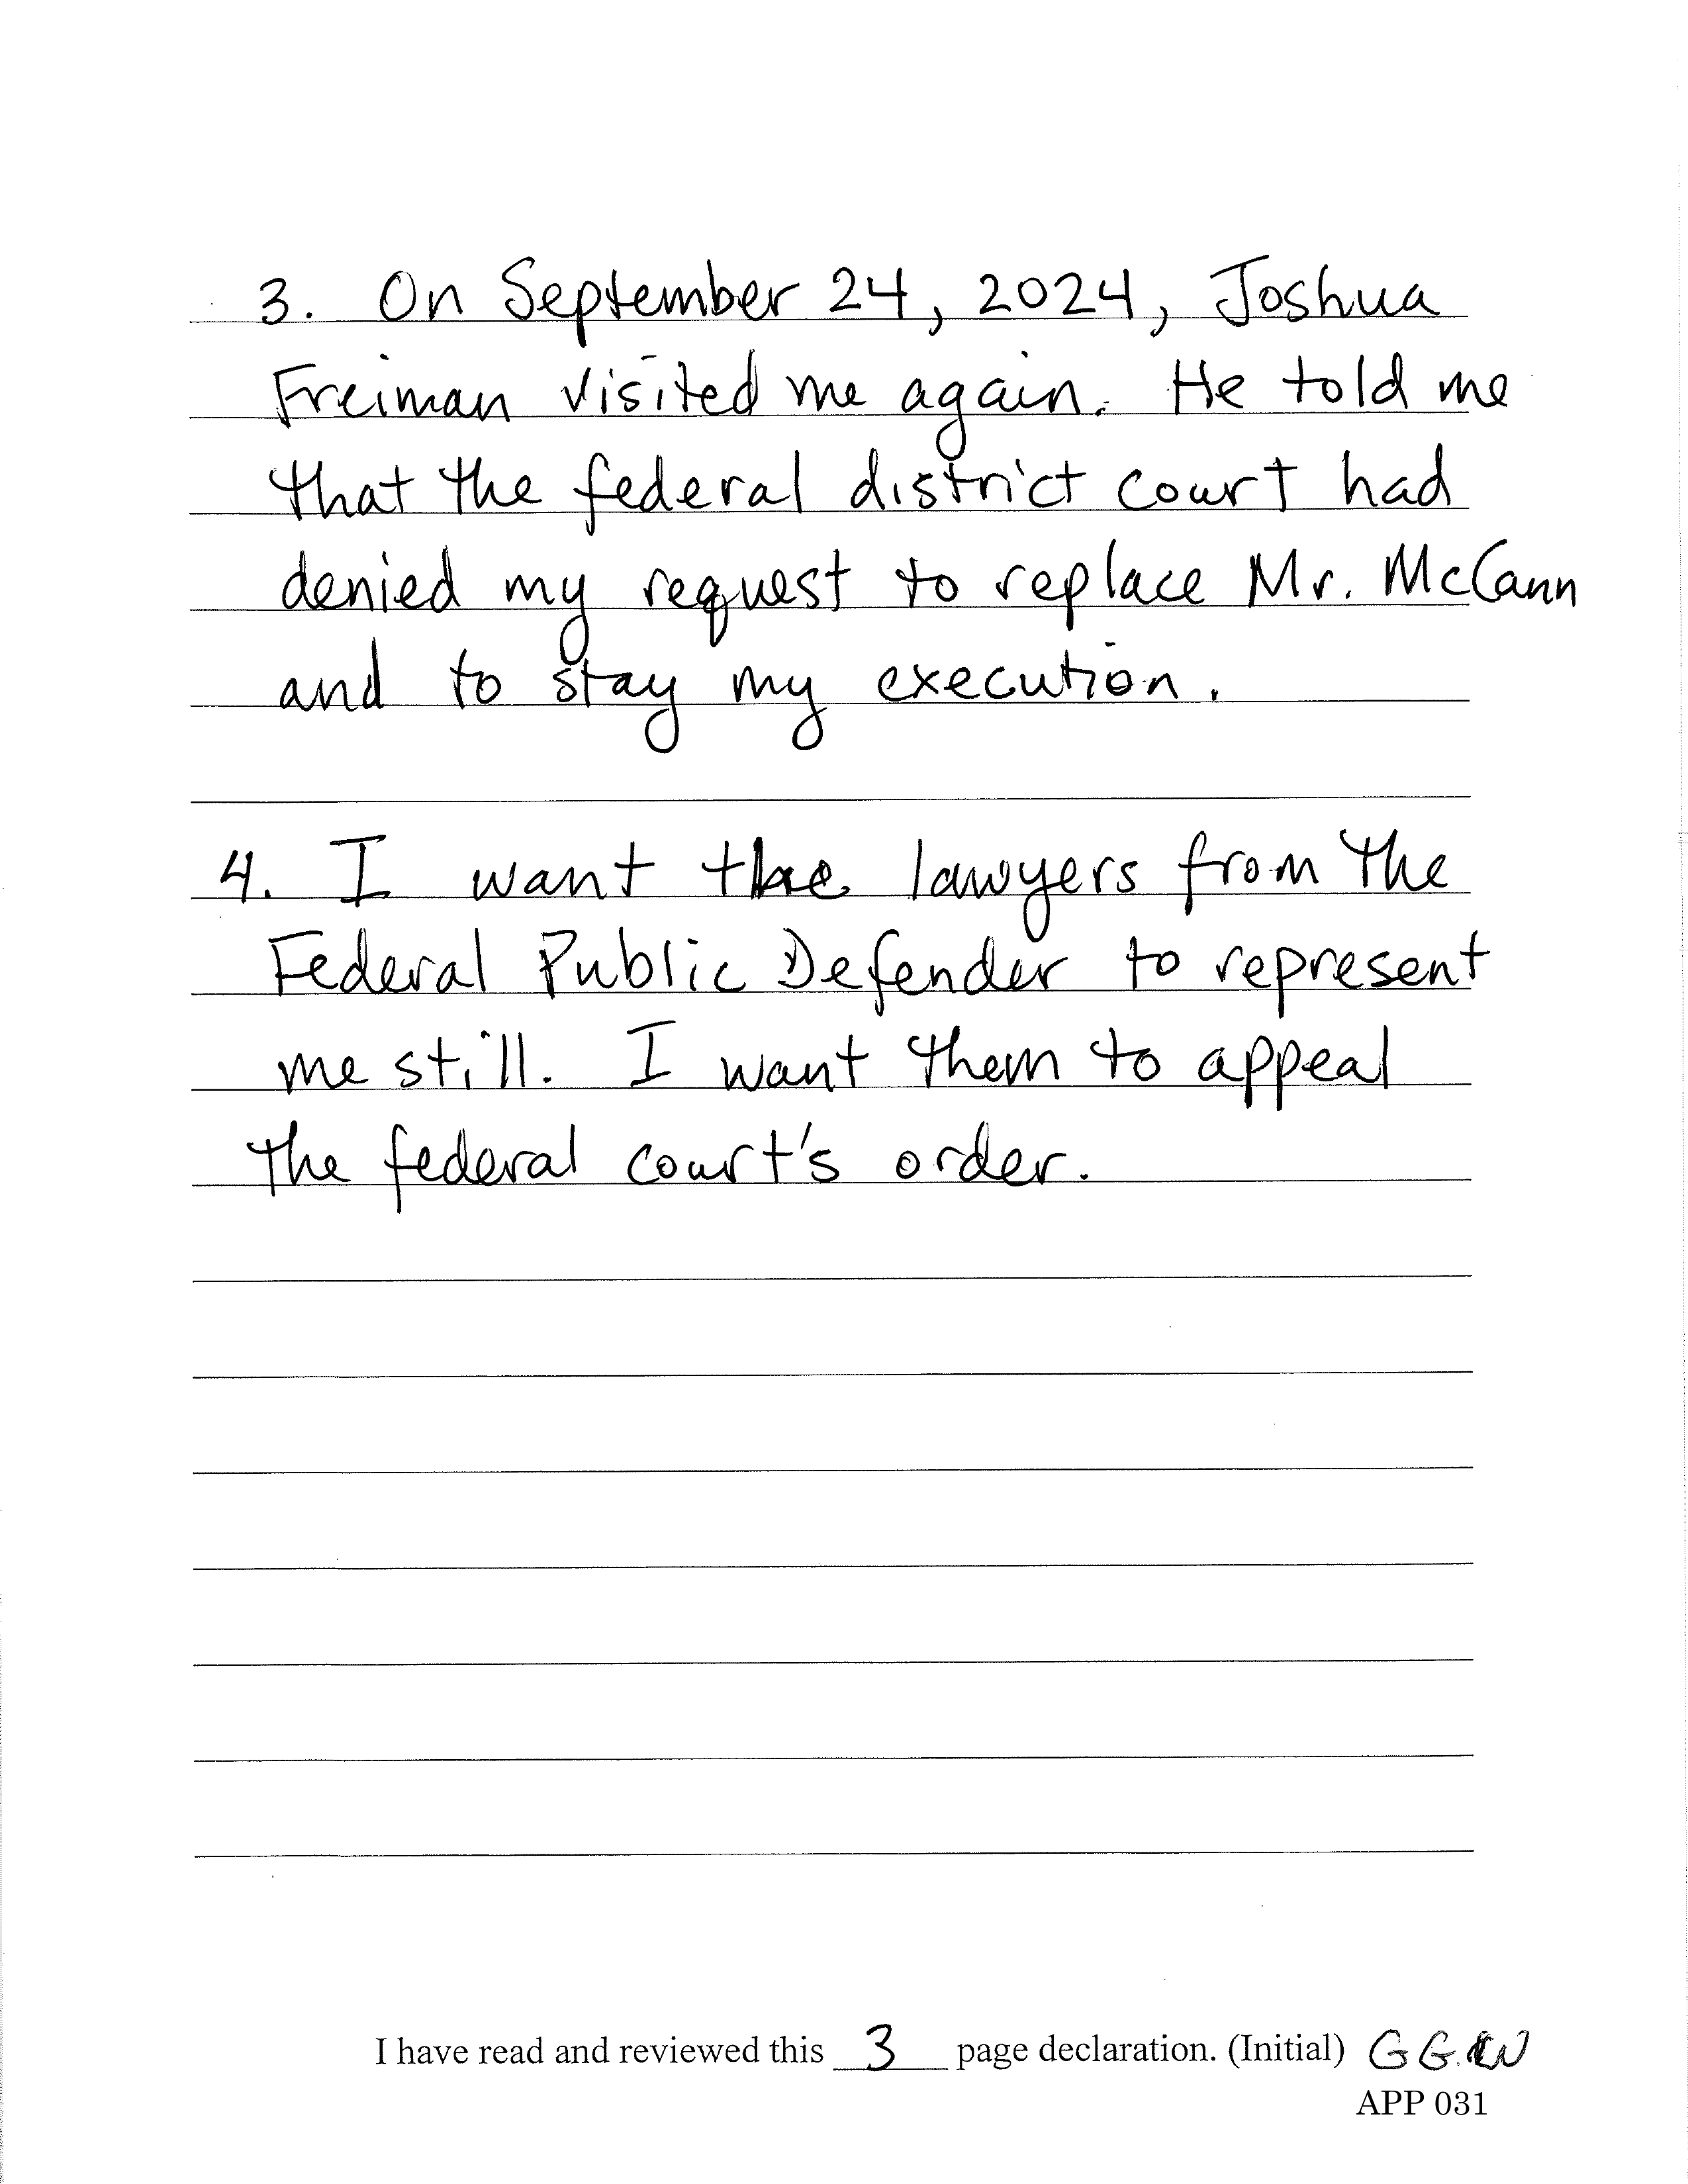 3. On September 24, 2024, Joshua
Freiman visited me again. He told me
that the federal district court had
denied my request to replace Mr. McCann
and to stay my execution.
4. I want the lawyers from the
Federal Public Defender to represent
me still. I want them to appeal
the federal court's order.
I have read and reviewed this 3 page declaration. (Initial) G G.
APP 031